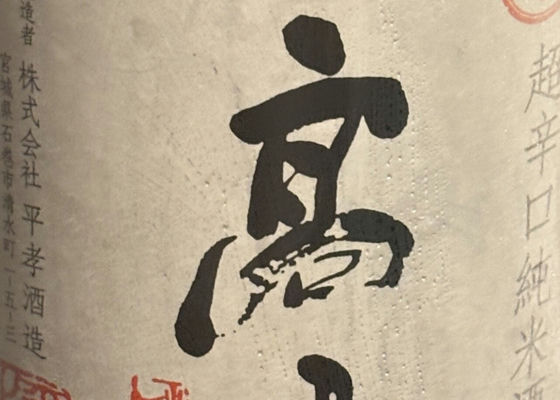 超辛口純米酒
高
造者 株式会社 平孝酒造
宮城県石巻市清水町一-五-三